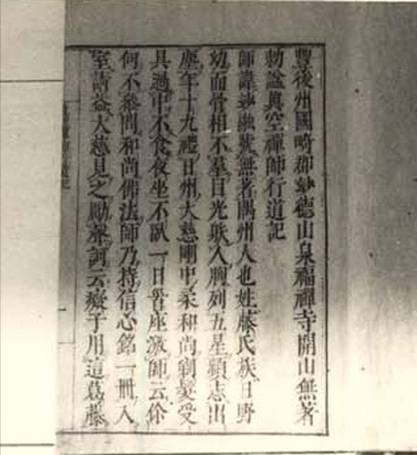 豐後州國崎郡妙德山泉福禪寺開山無著
勅諡眞空禪師行道記
師諱妙融號無著隅州人也姓藤氏族曰野
幼而骨相不羣目光射人胸列五星頴志出
塵年十九禮日州大慈剛中柔和尚剃髮受
具過中不食夜坐不臥一日首座激師云你
何不參問和尚佛法師乃持信心銘一冊入
室請益大慈見之勵聲訶云癡子用這葛藤